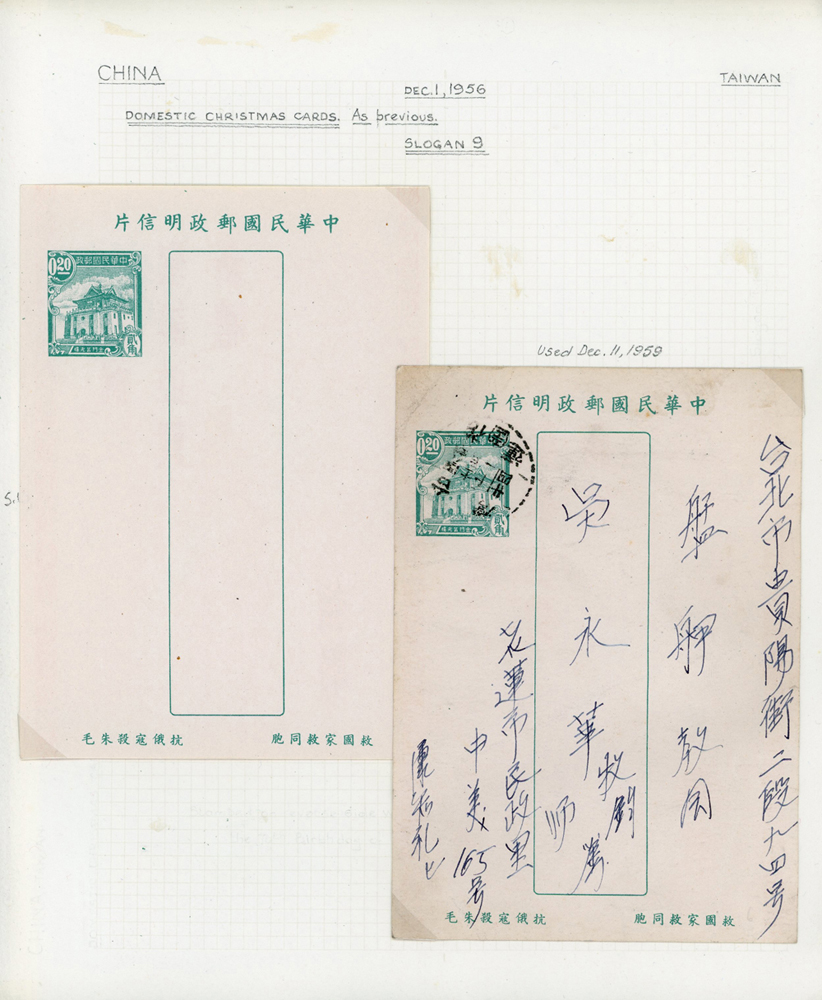 CHINA
DEC. 1, 1956
TAIWAN
DOMESTIC CHRISTMAS CARDS. As previous.
SLOGAN 9
片信明政郵國民華中
0.20
政郵國民華中
貳角
毛朱殺寇俄抗
胞同救家國救
Used Dec. 11, 1959
片信明政郵國民華中
0.20
政郵國民華中
貳角
台北市貴陽街二段九四号
艋舺教会
吳永華牧師
花蓮市民政里
中美165号
毛朱殺寇俄抗
胞同救家國救